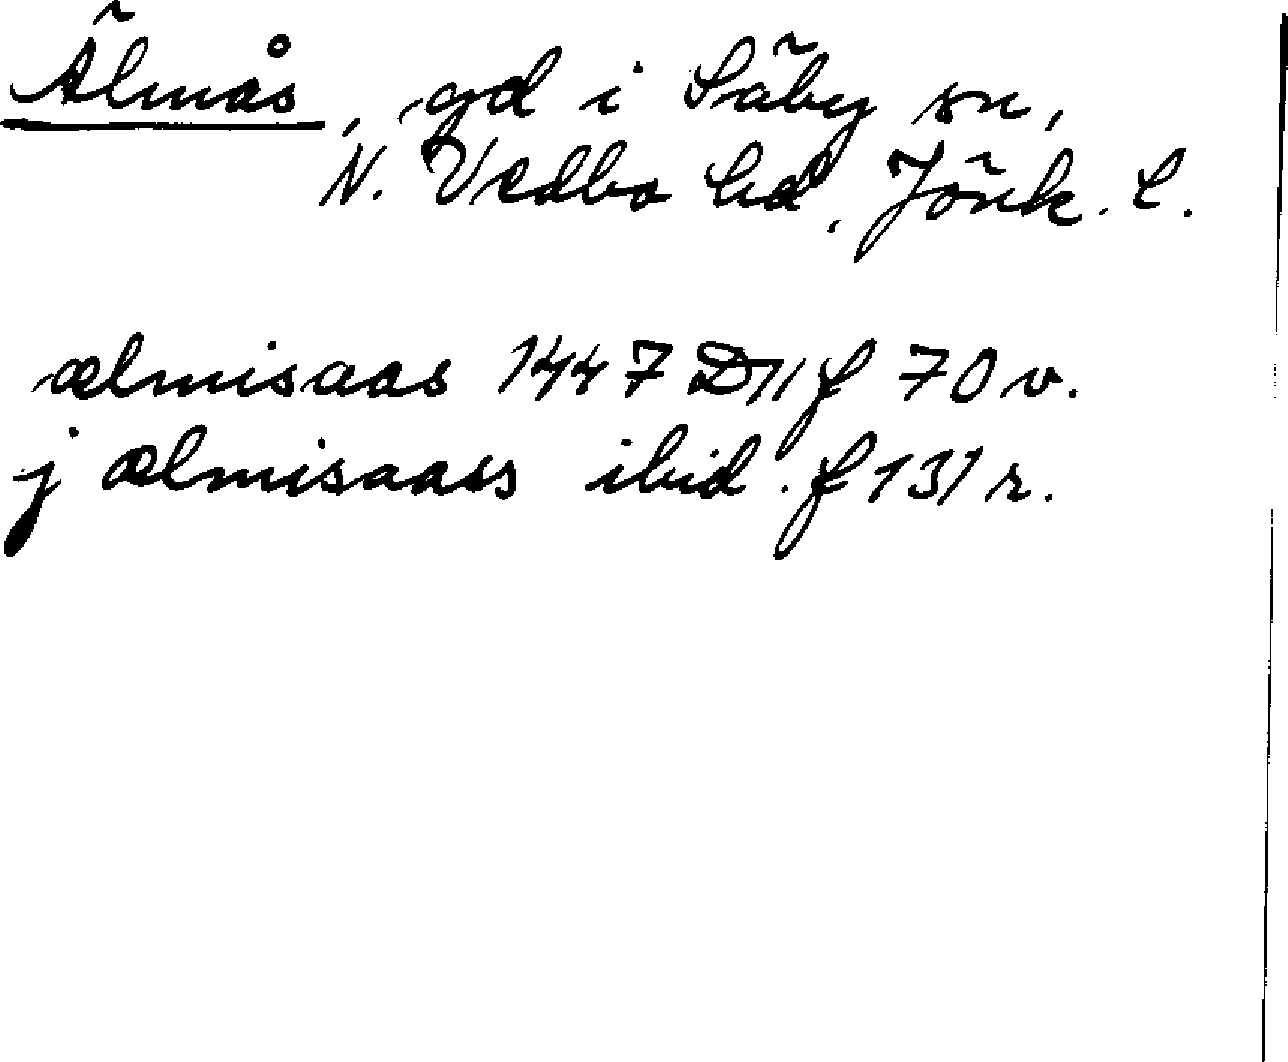 Älmås, gd i Säby sn,
N. Vedbo hd, Jönk. l.
ælmisaas 1447 D11 f 70 v.
j ælmisaass ibid. f 131 r.